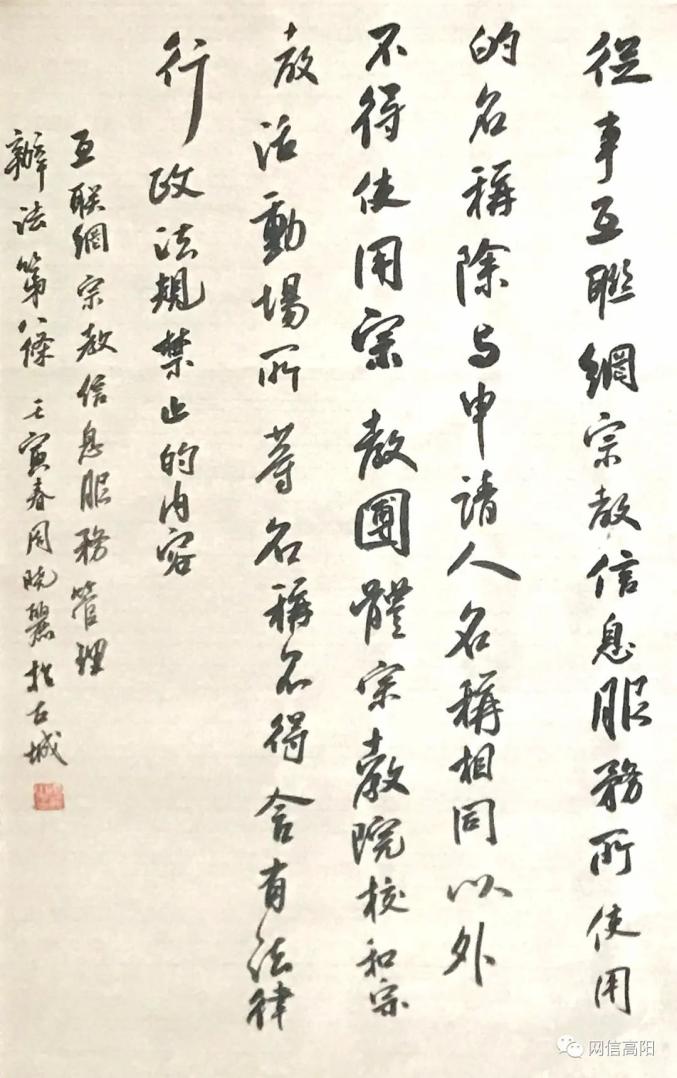 從事互聯網宗教信息服務所使用
的名稱除与申請人名稱相同以外
不得使用宗教團體宗教院校和宗
教活動場所等名稱不得含有法律
行政法規禁止的内容
互联網宗教信息服務管理
辦法第八條 壬寅春周晓麗於古城
网信高阳